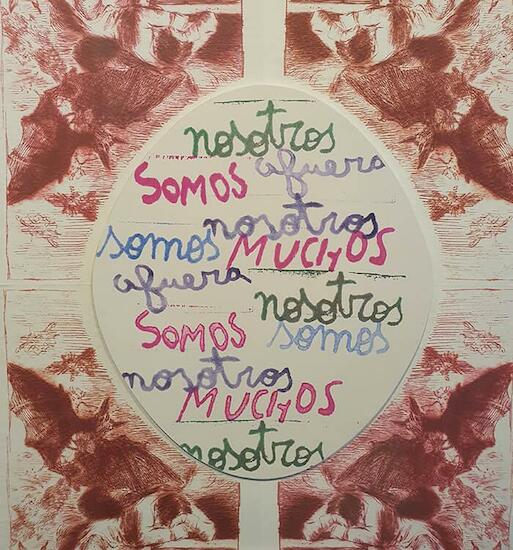 nosotros
afuera
SOMOS
nosotros
somos
MUCHOS
afuera
nosotros
SOMOS
somos
nosotros
MUCHOS
nosotros